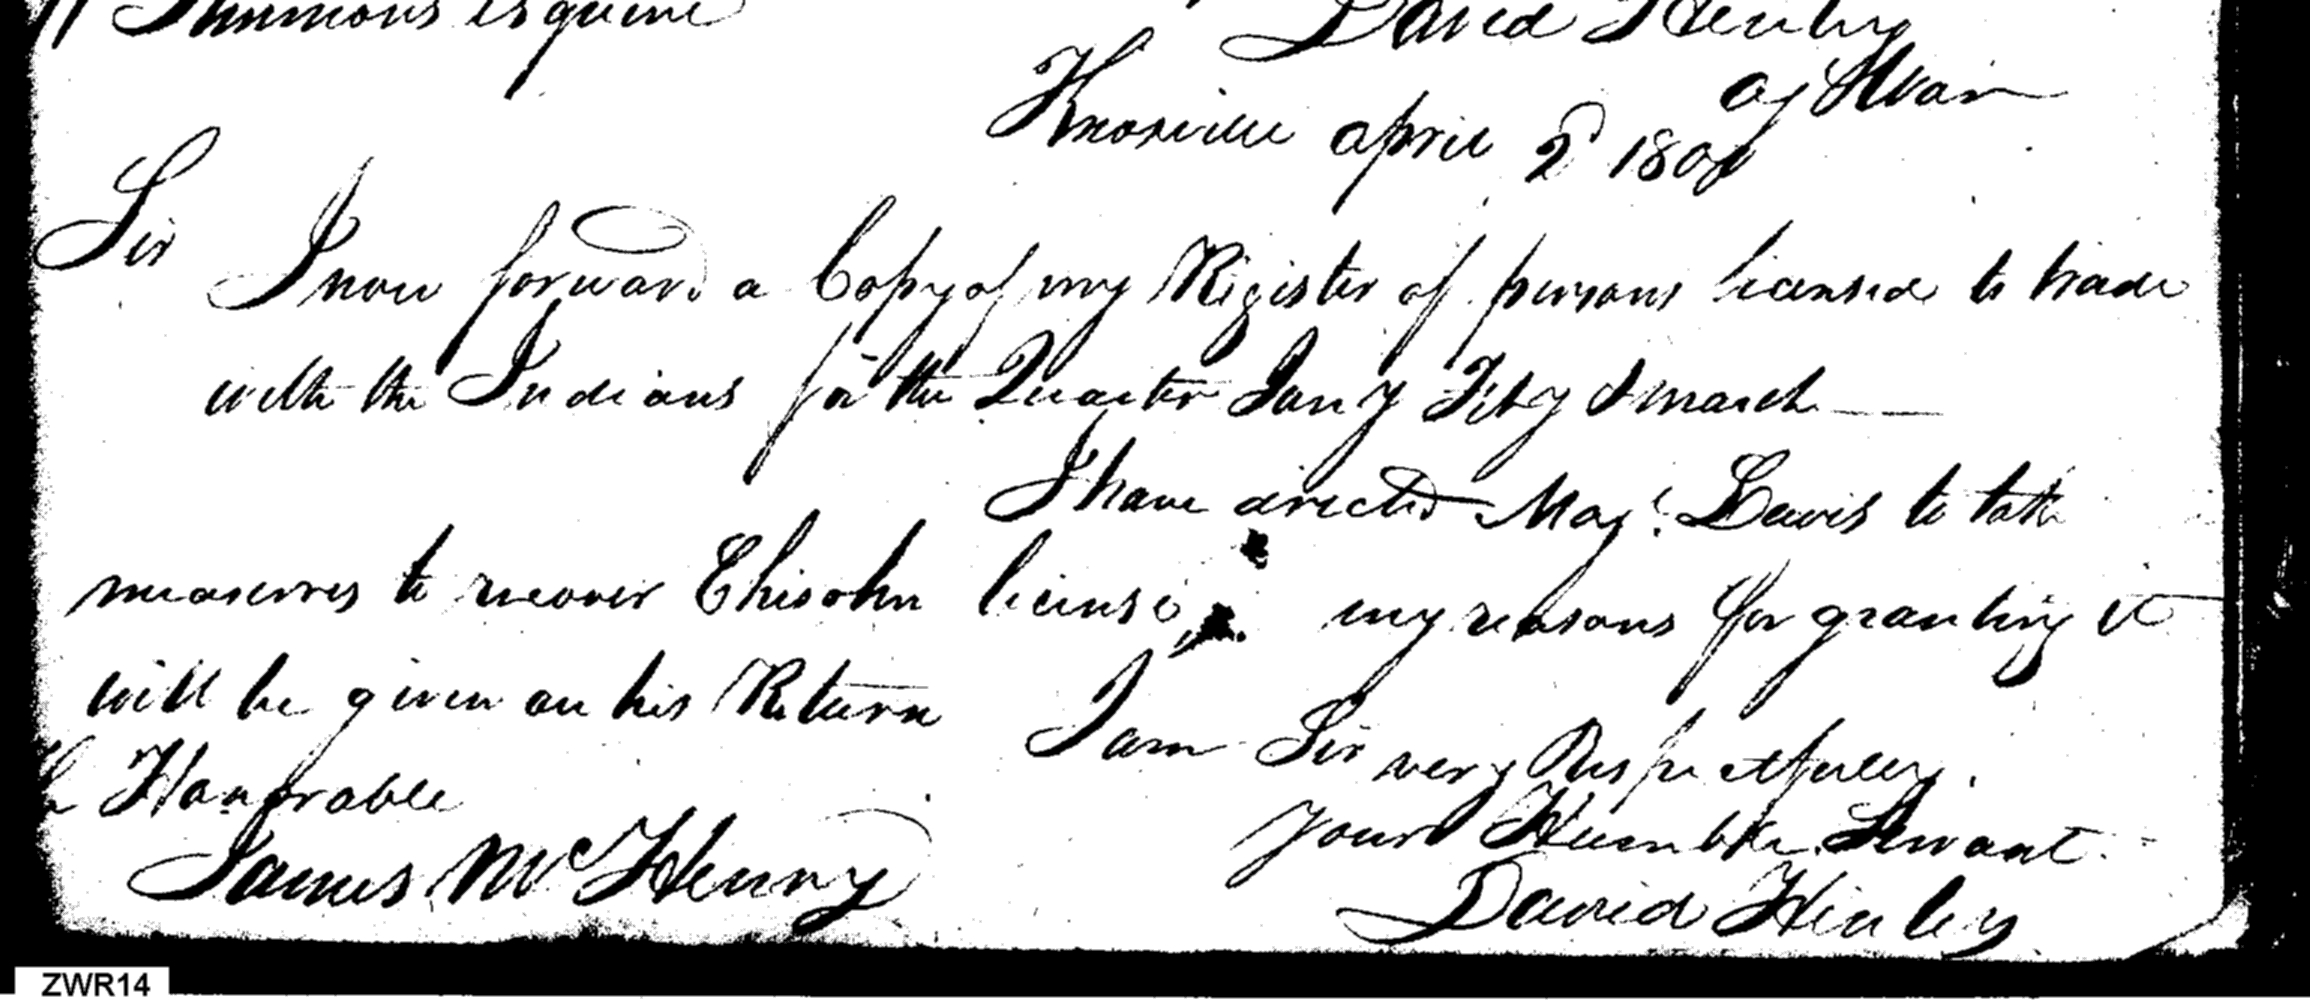 Simmons esquire David Henley
Ag.t War
Knoxville april 2d 1800
Sir
I now forward a Copy of my Register of persons licensed to trade
with the Indians for the Quarter Jany Feby & march
I have directed Majr. Lewis to take
measures to recover Chisolm license, my reasons for granting it
will be given on his Return
I am Sir very Respectfully.
Your Humble Servant
The Honorable
James McHenry David Henley
ZWR14